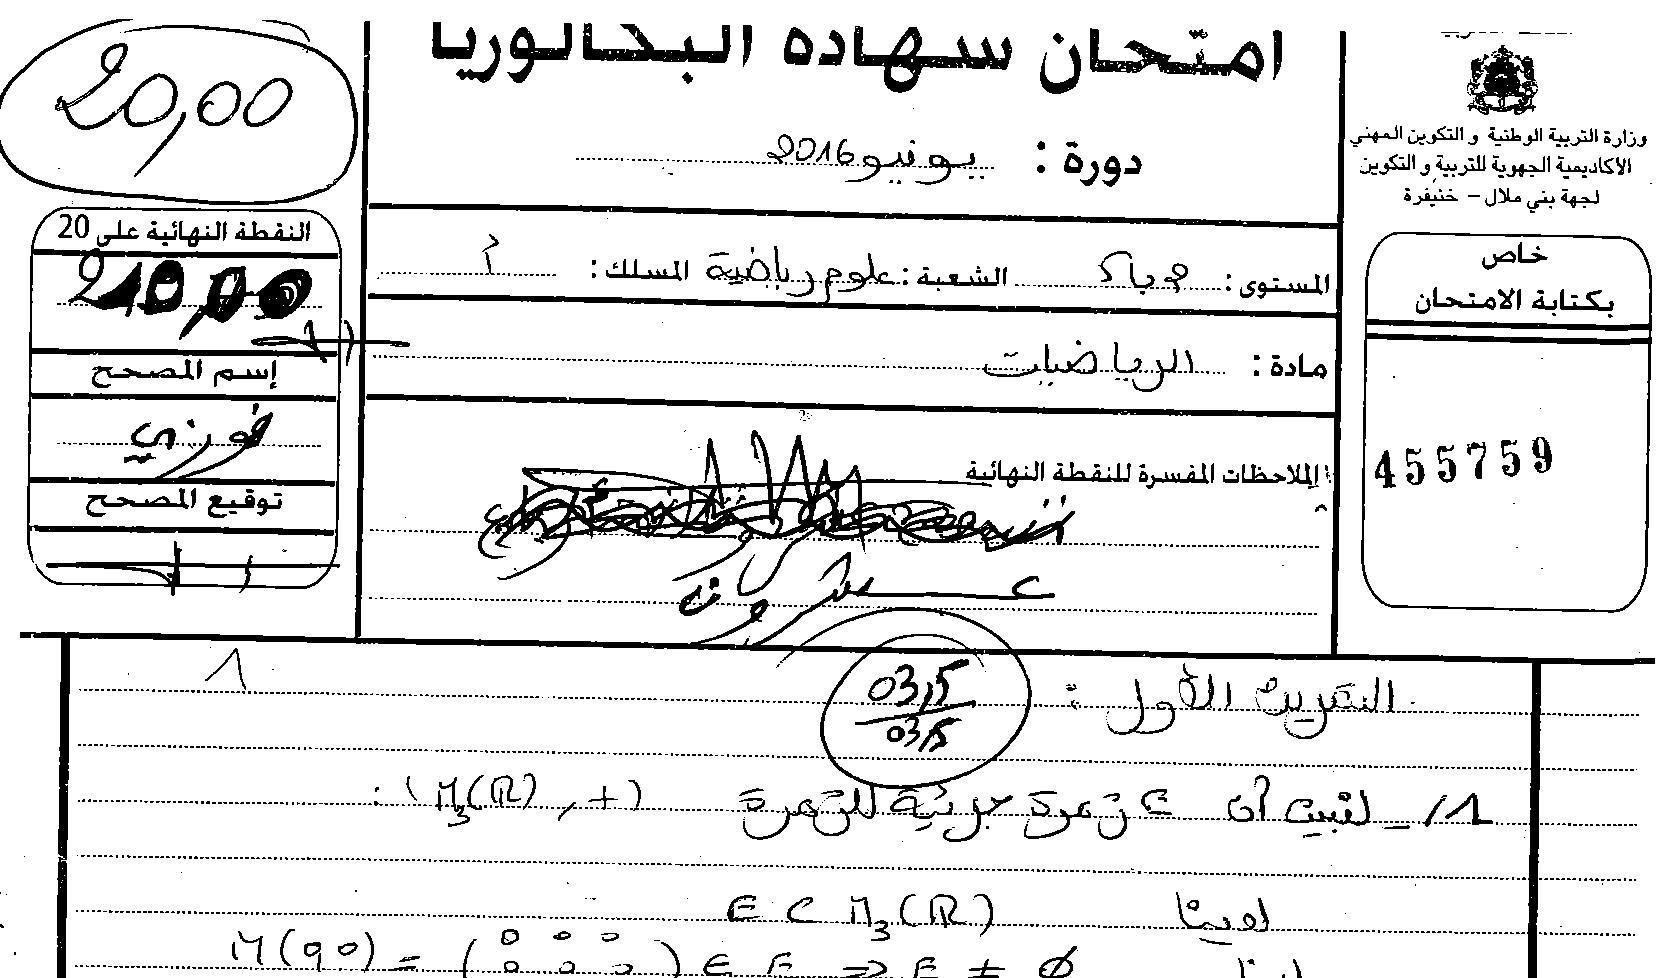 امتحان شهادة البكالوريا
دورة : يونيو 2016
وزارة التربية الوطنية و التكوين المهني
الأكاديمية الجهوية للتربية و التكوين
لجهة بني ملال – خنيفرة
20,00
النقطة النهائية على 20
إسم المصحح
فوزي
توقيع المصحح
المستوى : 2 باك الشعبة : علوم رياضية المسلك : أ
مادة : الرياضيات
الملاحظات المفسرة للنقطة النهائية :
عشرون
خاص
بكتابة الامتحان
455759
1
التمرين الأول :
03,5
03,5
1/- لنبين أن E زمرة جزئية للزمرة (M₃(ℝ), +) :
لدينا E ⊂ M₃(ℝ)
لدينا M(0,0) = (0 0 0 0 0 0) ∈ E ⇒ E ≠ ∅